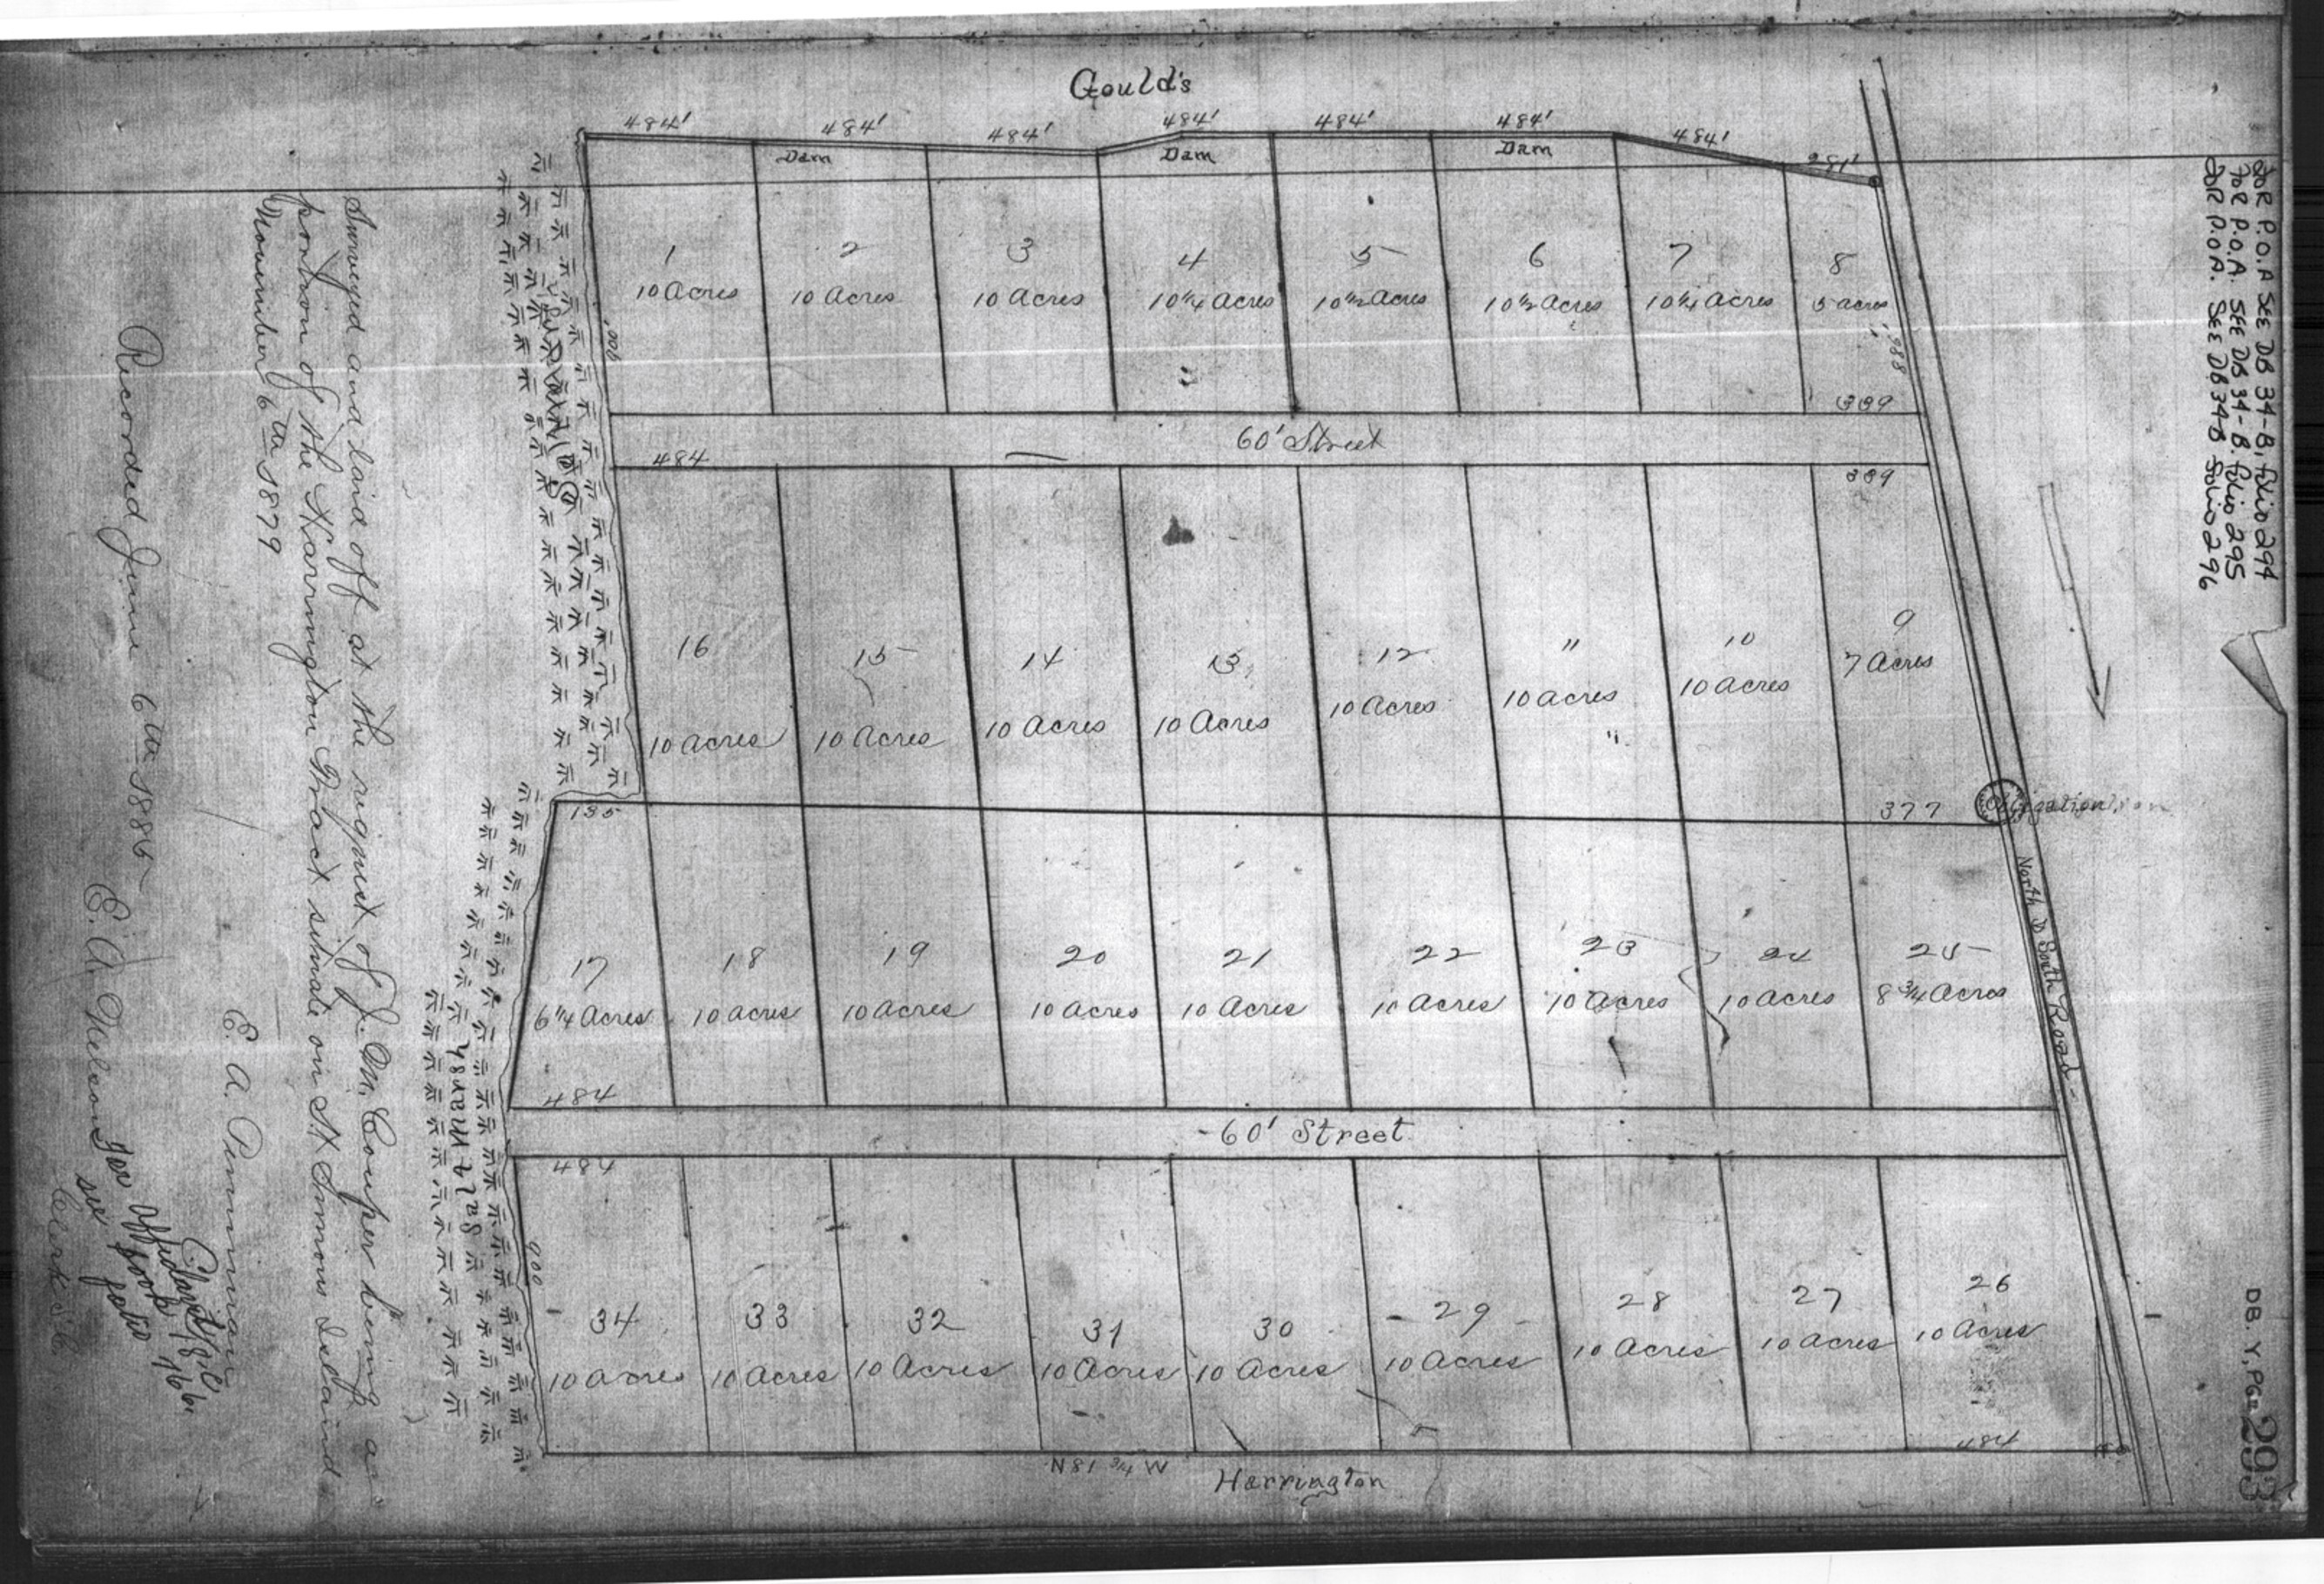 Gould's
484' 484' 484' 484' 484' 484' 484' 281'
Dam Dam Dam
1 2 3 4 5 6 7 8
10 Acres 10 Acres 10 Acres 10 1/4 Acres 10 1/2 Acres 10 1/2 Acres 10 1/4 Acres 5 acres
900' 988'
389
60' Street
484 389
16 15 14 13 12 " 10 9
10 Acres 10 Acres 10 Acres 10 Acres 10 Acres 10 Acres 10 Acres 7 Acres
"
135 377
17 18 19 20 21 22 23 24 25
6 1/4 Acres 10 acres 10 Acres 10 Acres 10 Acres 10 Acres 10 Acres 10 Acres 8 3/4 Acres
484
60' Street
484
900
34 33 32 31 30 29 28 27 26
10 acres 10 Acres 10 Acres 10 Acres 10 Acres 10 Acres 10 Acres 10 Acres 10 Acres
484
N 81 3/4 W
Harrington
North & South Road
Salt Marsh
Salt Marsh
Surveyed and laid off at the request of J. M. Couper being a
portion of the Harrington Tract situate on St Simons Island
November 6th 1879
E. A. Penniman
Recorded June 6th 1886
E. A. Nelson
Clerk S.C.
for affidavit
see book
folio 766
FOR P.O.A SEE DB 34-B, folio 294
FOR P.O.A. SEE DB 34-B. folio 295
FOR P.O.A. SEE DB 34B folio 296
DB. Y, PG. 293